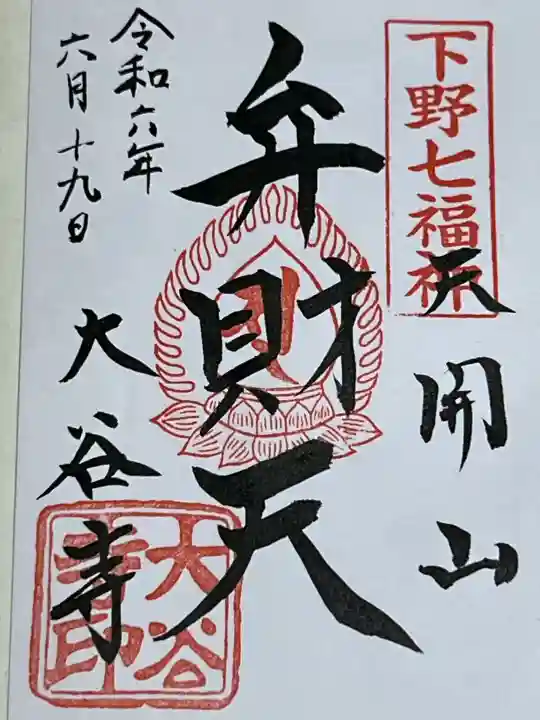 下野七福神
天開山
弁財天
令和六年
六月十九日
大谷寺
大谷
寺印